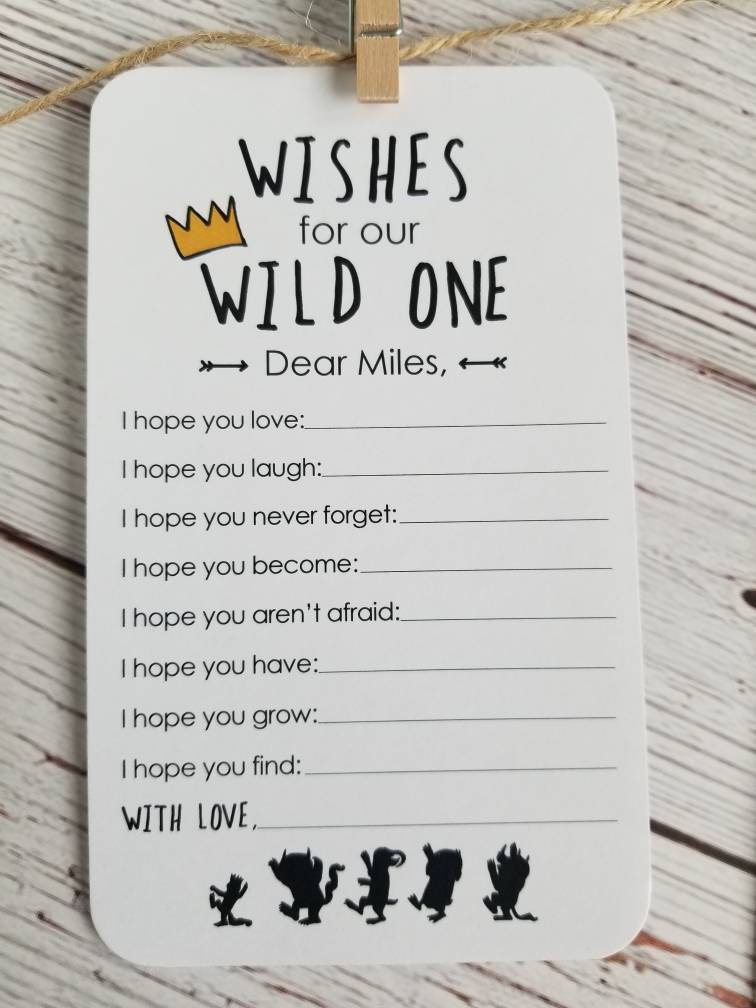 WISHES
for our
WILD ONE
Dear Miles,
I hope you love:
I hope you laugh:
I hope you never forget:
I hope you become:
I hope you aren't afraid:
I hope you have:
I hope you grow:
I hope you find:
WITH LOVE,